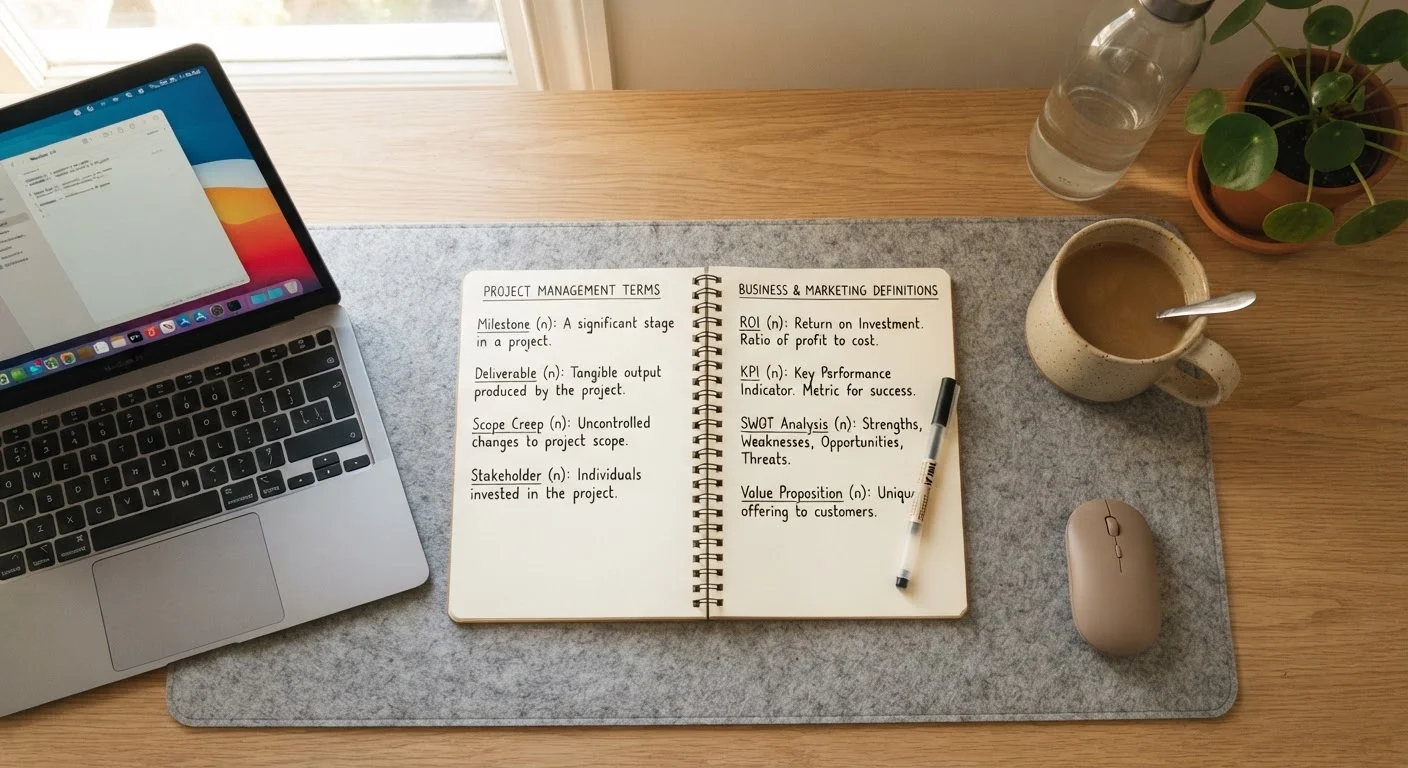 PROJECT MANAGEMENT TERMS
Milestone (n): A significant stage
in a project.
Deliverable (n): Tangible output
produced by the project.
Scope Creep (n): Uncontrolled
changes to project scope.
Stakeholder (n): Individuals
invested in the project.
BUSINESS & MARKETING DEFINITIONS
ROI (n): Return on Investment.
Ratio of profit to cost.
KPI (n): Key Psrformance
Indicator. Metric for success.
SWOT Analysis (n): Strengths,
Weaknesses, Opportunities,
Threats.
Value Proposition (n): Uniqu
offering to customers.